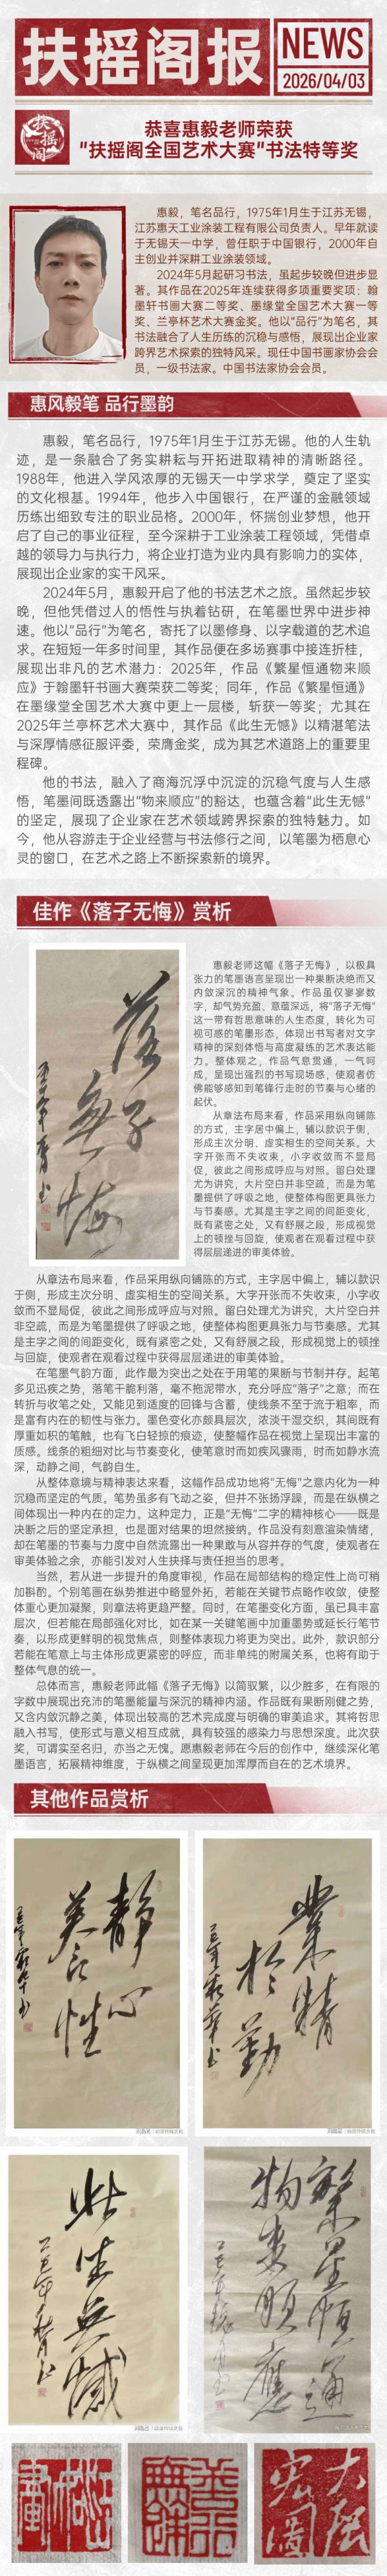 扶摇阁报
NEWS
2026/04/03
扶摇阁
恭喜惠毅老师荣获
"扶摇阁全国艺术大赛"书法特等奖
惠毅，笔名品行，1975年1月生于江苏无锡，
江苏惠天工业涂装工程有限公司负责人。早年就读
于无锡天一中学，曾任职于中国银行，2000年自
主创业并深耕工业涂装领域。
2024年5月起研习书法，虽起步较晚但进步显
著。其作品在2025年连续获得多项重要奖项：翰
墨轩书画大赛二等奖、墨缘堂全国艺术大赛一等
奖、兰亭杯艺术大赛金奖。他以"品行"为笔名，其
书法融合了人生历练的沉稳与感悟，展现出企业家
跨界艺术探索的独特风采。现任中国书画家协会会
员，一级书法家。中国书法家协会会员。
惠风毅笔 品行墨韵
惠毅，笔名品行，1975年1月生于江苏无锡。他的人生轨
迹，是一条融合了务实耕耘与开拓进取精神的清晰路径。
1988年，他进入学风浓厚的无锡天一中学求学，奠定了坚实
的文化根基。1994年，他步入中国银行，在严谨的金融领域
历练出细致专注的职业品格。2000年，怀揣创业梦想，他开
启了自己的事业征程，至今深耕于工业涂装工程领域，凭借卓
越的领导力与执行力，将企业打造为业内具有影响力的实体，
展现出企业家的实干风采。
2024年5月，惠毅开启了他的书法艺术之旅。虽然起步较
晚，但他凭借过人的悟性与执着钻研，在笔墨世界中进步神
速。他以"品行"为笔名，寄托了以墨修身、以字载道的艺术追
求。在短短一年多时间里，其作品便在多场赛事中接连折桂，
展现出非凡的艺术潜力：2025年，作品《繁星恒通物来顺
应》于翰墨轩书画大赛荣获二等奖；同年，作品《繁星恒通》
在墨缘堂全国艺术大赛中更上一层楼，斩获一等奖；尤其在
2025年兰亭杯艺术大赛中，其作品《此生无憾》以精湛笔法
与深厚情感征服评委，荣膺金奖，成为其艺术道路上的重要里
程碑。
他的书法，融入了商海沉浮中沉淀的沉稳气度与人生感
悟，笔墨间既透露出"物来顺应"的豁达，也蕴含着"此生无憾"
的坚定，展现了企业家在艺术领域跨界探索的独特魅力。如
今，他从容游走于企业经营与书法修行之间，以笔墨为栖息心
灵的窗口，在艺术之路上不断探索新的境界。
佳作《落子无悔》赏析
落子
無悔
惠毅老师这幅《落子无悔》，以极具
张力的笔墨语言呈现出一种果断决绝而又
内敛深沉的精神气象。作品虽仅寥寥数
字，却气势充盈、意蕴深远，将"落子无悔"
这一带有哲思意味的人生态度，转化为可
视可感的笔墨形态，体现出书写者对文字
精神的深刻体悟与高度凝练的艺术表达能
力。整体观之，作品气息贯通，一气呵
成，呈现出强烈的书写现场感，使观者仿
佛能够感知到笔锋行走时的节奏与心绪的
起伏。
从章法布局来看，作品采用纵向铺陈
的方式，主字居中偏上，辅以款识于侧，
形成主次分明、虚实相生的空间关系。大
字开张而不失收束，小字收敛而不显局
促，彼此之间形成呼应与对照。留白处理
尤为讲究，大片空白并非空疏，而是为笔
墨提供了呼吸之地，使整体构图更具张力
与节奏感。尤其是主字之间的间距变化，
既有紧密之处，又有舒展之段，形成视觉
上的顿挫与回旋，使观者在观看过程中获
得层层递进的审美体验。
从章法布局来看，作品采用纵向铺陈的方式，主字居中偏上，辅以款识
于侧，形成主次分明、虚实相生的空间关系。大字开张而不失收束，小字收
敛而不显局促，彼此之间形成呼应与对照。留白处理尤为讲究，大片空白并
非空疏，而是为笔墨提供了呼吸之地，使整体构图更具张力与节奏感。尤其
是主字之间的间距变化，既有紧密之处，又有舒展之段，形成视觉上的顿挫
与回旋，使观者在观看过程中获得层层递进的审美体验。
在笔墨气韵方面，此作最为突出之处在于用笔的果断与节制并存。起笔
多见迅疾之势，落笔干脆利落，毫不拖泥带水，充分呼应"落子"之意；而在
转折与收笔之处，又能见到适度的回锋与含蓄，使线条不至于流于粗率，而
是富有内在的韧性与张力。墨色变化亦颇具层次，浓淡干湿交织，其间既有
厚重如积的笔触，也有飞白轻掠的痕迹，使整幅作品在视觉上呈现出丰富的
质感。线条的粗细对比与节奏变化，使笔意时而如疾风骤雨，时而如静水流
深，动静之间，气韵自生。
从整体意境与精神表达来看，这幅作品成功地将"无悔"之意内化为一种
沉稳而坚定的气质。笔势虽多有飞动之姿，但并不张扬浮躁，而是在纵横之
间体现出一种内在的定力。这种定力，正是"无悔"二字的精神核心——既是
决断之后的坚定承担，也是面对结果的坦然接纳。作品没有刻意渲染情绪，
却在笔墨的节奏与力度中自然流露出一种果敢与从容并存的气度，使观者在
审美体验之余，亦能引发对人生抉择与责任担当的思考。
当然，若从进一步提升的角度审视，作品在局部结构的稳定性上尚可稍
加斟酌。个别笔画在纵势推进中略显外拓，若能在关键节点略作收敛，使整
体重心更加凝聚，则章法将更趋严整。同时，在笔墨变化方面，虽已具丰富
层次，但若能在局部强化对比，如在某一关键笔画中加重墨势或延长行笔节
奏，以形成更鲜明的视觉焦点，则整体表现力将更为突出。此外，款识部分
若能在笔意上与主体形成更紧密的呼应，而非单纯的附属关系，也将有助于
整体气息的统一。
总体而言，惠毅老师此幅《落子无悔》以简驭繁，以少胜多，在有限的
字数中展现出充沛的笔墨能量与深沉的精神内涵。作品既有果断刚健之势，
又含内敛沉静之美，体现出较高的艺术完成度与明确的审美追求。其将哲思
融入书写，使形式与意义相互成就，具有较强的感染力与思想深度。此次获
奖，可谓实至名归，亦当之无愧。愿惠毅老师在今后的创作中，继续深化笔
墨语言，拓展精神维度，于纵横之间呈现更加浑厚而自在的艺术境界。
其他作品赏析
静心
養性
業精
於勤
此生無憾
繁星恒通
物来順應
大展
宏圖